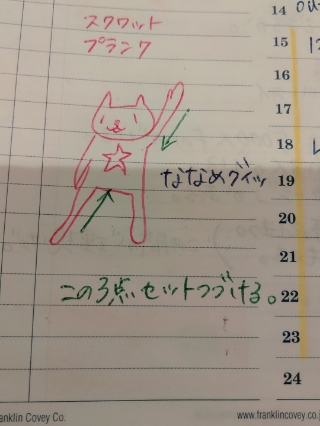 スクワット
プランク
ななめグイッ
この3点セットつづける。
14
15
16
17
18
19
20
21
22
23
24
anklin Covey Co.
www.franklincovey.co